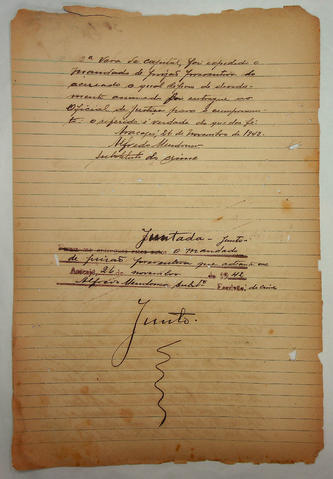 2ª Vara da capital, foi expedido o
mandado de prisão preventiva do
acusado o qual depois de devida-
mente assinado foi entregue ao
Oficial de Justiça para o cumprimen-
to. o referido é verdade do que dou fé.
Aracajú, 26 de Novembro de 1942.
Alfredo Mendonça
substituto do crime
Juntada - Junto-
o mandado
de prisão preventiva que adiante se
Aracajú, 26 de novembro de 1942
Alfredo Mendonça Substº Escrivão, do crime
Junto.